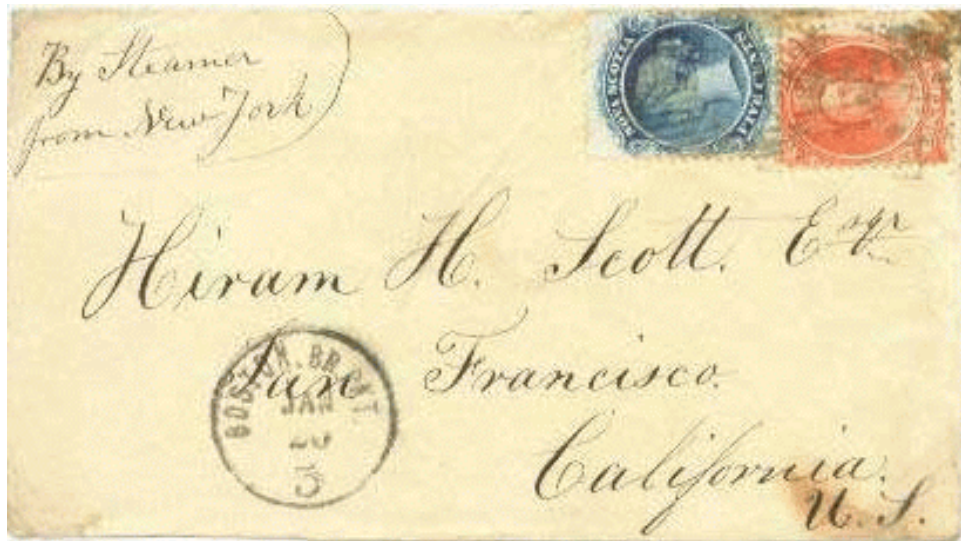 By Steamer
from New York
NOVA SCOTIA
Hiram H. Scott. Esqr
San Francisco.
California.
U.S.
BOSTON. BR. PKT.
JAN
3